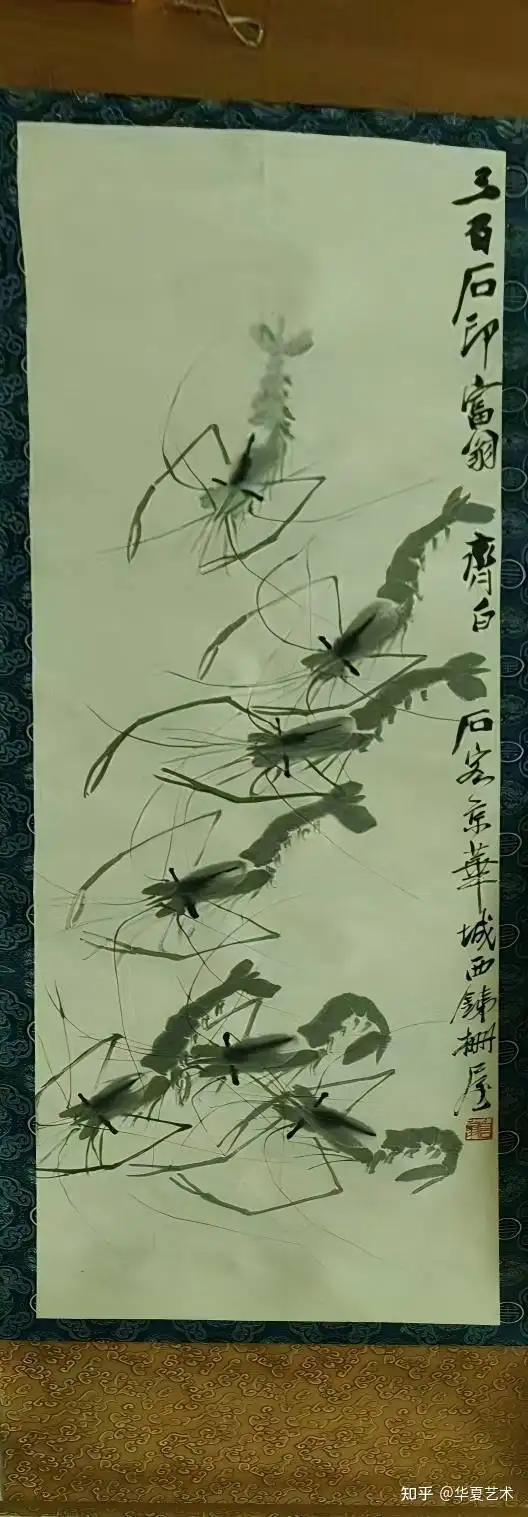 三百石印富翁齊白石客京華城西鐵柵屋
知乎 @华夏艺术